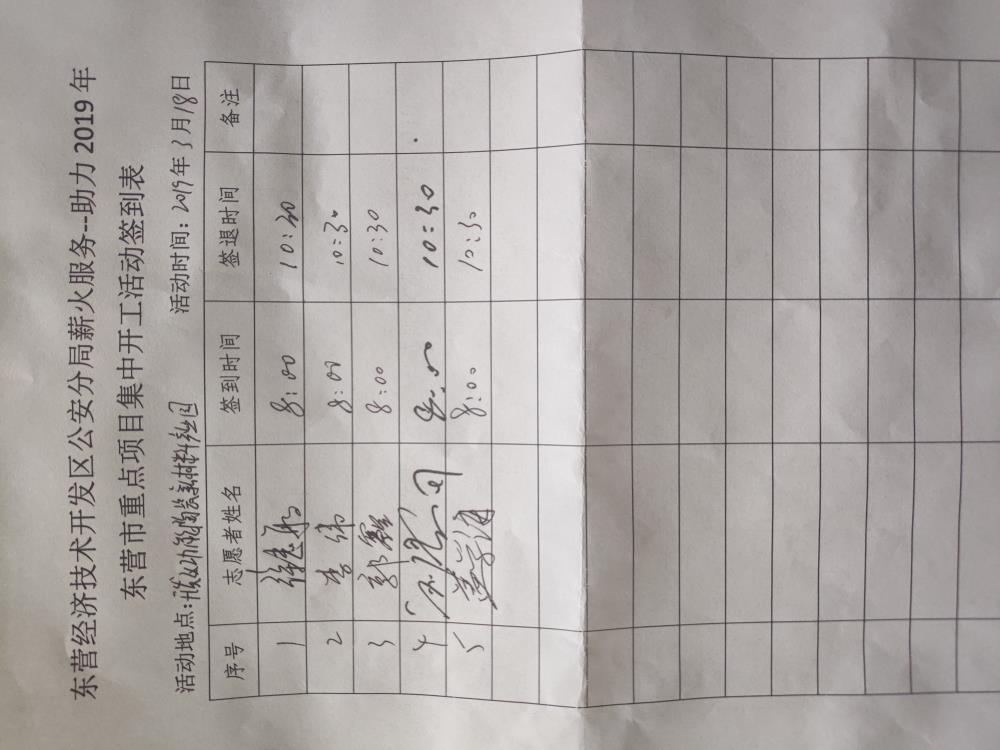 东营经济技术开发区公安分局薪火服务--助力 2019 年
东营市重点项目集中开工活动签到表
活动地点: 活动时间: 2019年 3月18日
序号 志愿者姓名 签到时间 签退时间 备注
1 8:00 10:30
2 李伟 8:00 10:30
3 郭 8:00 10:30
4 8:00 10:30
5 8:00 10:30